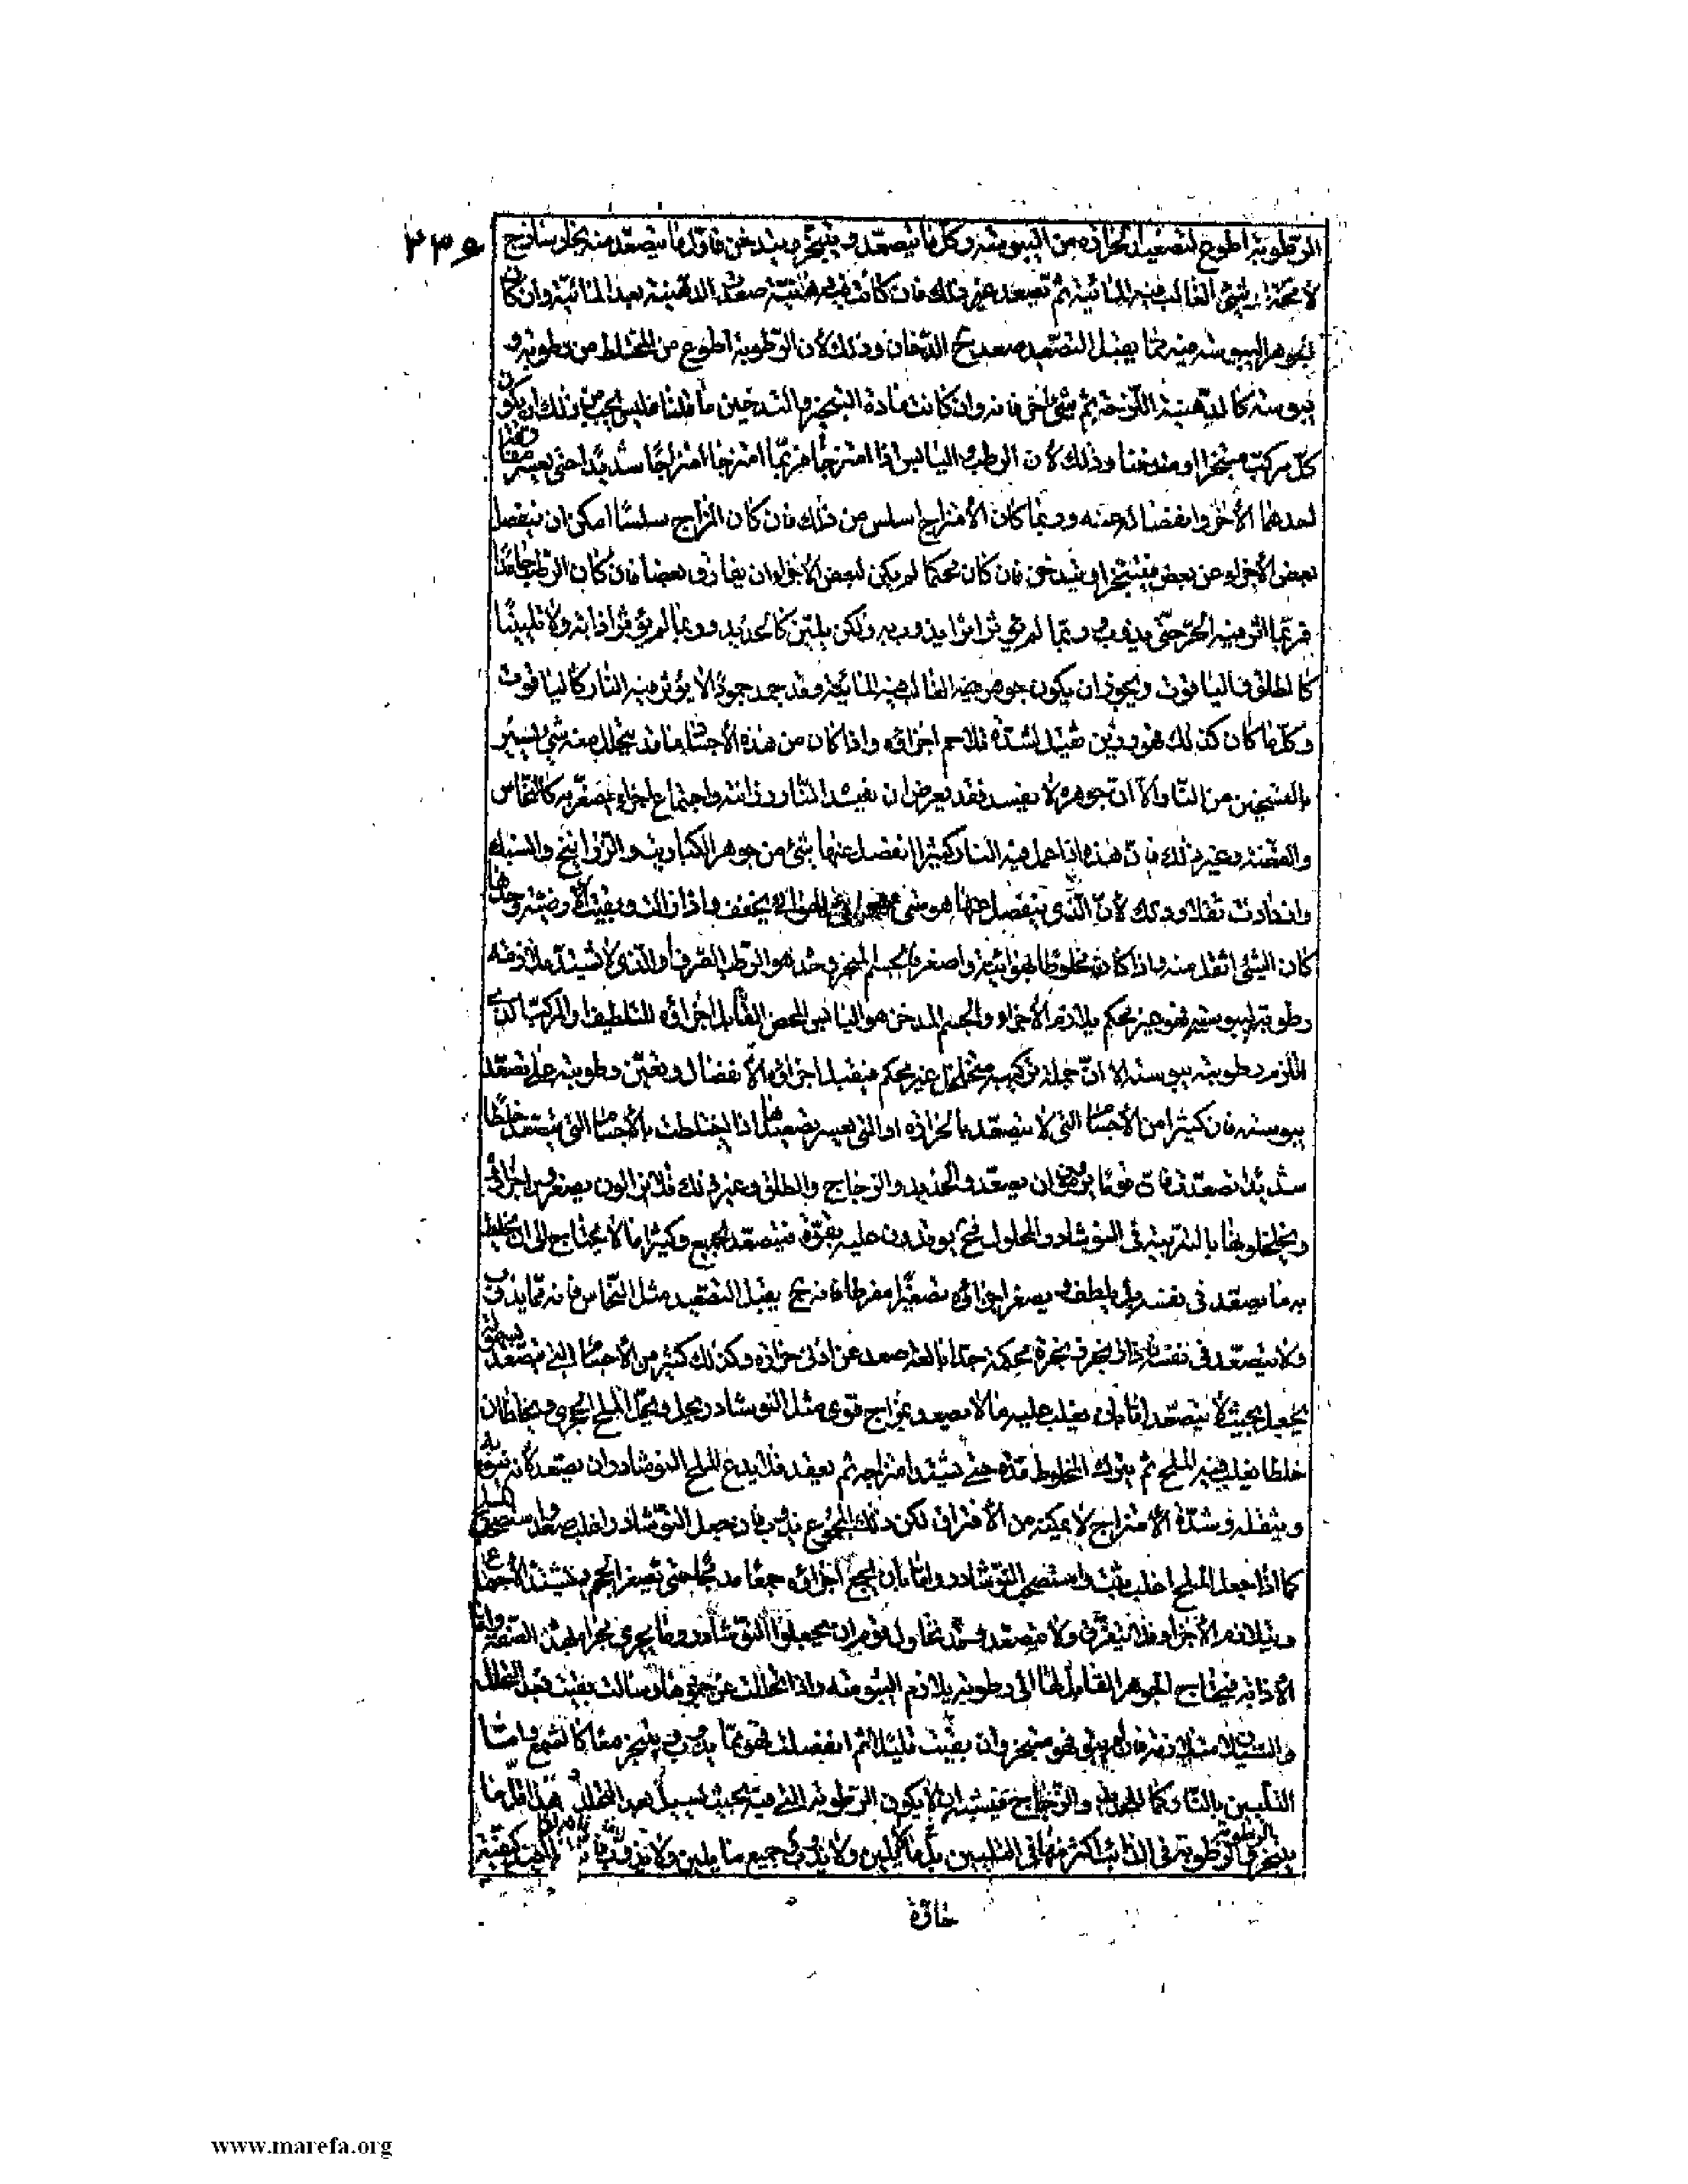 الرطوبة اطوع لتصعيد الحرارة من اليبوسة وكل ما يتصعد ويتبخر ويتدخن فاول ما يتصعد منه بخار ساذج
لا محة شئ الغالب فيه المائية ثم تصعد غير ذلك فان كانت فيه دهنية صعدت الدهنية بعد المائية وان كان
لجوهر اليبوسة فيه مما يقبل التصعيد صعد ح الدخان وذلك لأن الرطوبة اطوع من المختلط من رطوبة و
يبوسة كالدهنية اللزجة ثم شئ اخر فانه وان كانت مادة التبخير والتدخين ما قلنا فليس يجب من ذلك ان يكون
كل مركب متبخرا او متدخنا وذلك لأن الرطب واليابس اذا امتزجا فربما امتزجا امتزاجا شديدا حتى يعسر مفارقة
احدهما الأخر وانفصاله عنه وربما كان الأمتزاج اسلس من ذلك فان كان المزاج سلسا امكن ان ينفصل
بعض الأجزاء عن بعض فيتبخر او يتدخن فان كان محكما لم يكن لبعض الأجزاء ان يفارق بعضا فان كان الرطب جامدا
فربما اثر فيه الحر حتى يذوب وربما لم يؤثر اثرا يذوب به ولكن يلين كالحديد وربما لم يؤثر اذابة ولا تليينا
كالطلق والياقوت ويجوز ان يكون جوهر فيه الغالب فيه المائية وقد جمد جمودا لا يؤثر فيه النار كالياقوت
وكل ما كان كذلك فهو رزين ثقيل لشدة تلاحم اجزائه واذا كان من هذه الأجسام ما قد يتحلل منه شئ يسير
بالتسخين من النار الا ان جوهره لا يفسد فقد يعرض ان يفيده النار رزانة واجتماع اجزاء وصغر به كالنحاس
والفضة وغير ذلك فان هذه اذا عمل فيه النار كثيرا انفصل عنها شئ من جوهر الكباريت والزرانيخ والسنبك
وازدادت ثقلا وذلك لأن الذى ينفصل عنها هو شئ هوائى يخفف فاذا زالت وبقيت الأرضية وحدها
كان الشئ اثقل منه اذا كان مخلوطا بهوائية واصغر فالجسم المتبخر وحده هو الرطب الصرف او الذى لا تشتد ملازمة
رطوبته ليبوسته فهو غير محكم تلازم الأجزاء والجسم المدخن هو اليابس المحض القابل اجزاؤه للتلطيف او المركب الذى
التزم رطوبته يبوسته الا ان جملة تركيبه متخلخل غير محكم فيقبل اجزاؤه الأنفصال وتعين رطوبته على تصعد
يبوسته فان كثيرا من الأجسام التى لا يتصعد بالحرارة او التى يعسر تصعيدها اذا اختلطت بالأجسام التى يتصعد خلطا
شديدا تصعدت فان قوما يرومون ان يصعدوا الحديد والزجاج والطلق وغير ذلك فلا يزالون يصغرون اجزاؤه
ويخلخلونها بالتربية فى النوشادر المحلول فح يوقدون عليه بقوة فيتصعد الجميع وكثيرا ما لا يحتاج الى ان يخلط
به ما يصعد فى نفسه بل يلطف و يصغر اجزائه تصغيرا مفرطا فانه ح يقبل التصعيد مثل النحاس فانه مما يذوب
ولا يتصعد فى نفسه واذا زنجر زنجرة محكمة جدا بالغة صعد عن ادنى حرارة وكذلك كثير من الأجسام التى يتصعد بسهولة
يجعل بحيث لا يتصعد اما بان يغلب عليه ما لا يصعد بمزاج قوى مثل النوشادر يحل ويحل الملح الحجرى ويخلطان
خلطا يغلب فيه الملح ثم يترك المخلوط مدة حتى يشتد امتزاجه ثم يعقد فلا يدع الملح النوشادر ان يصعد
ويثقله وشدة الأمتزاج لا يمكنه من الأفتراق لكن ذلك المجموع يذوب فان جعل النوشادر اغلب صعد واستصحب الملح
كما اذا جعل الملح اغلب يثبت واستصحب النوشادر واما بان يجمع اجزائه جمعا مدمجا حتى تصغر الحجم ويشتد الأجتماع
ويتلازم الأجزاء فلا يتفرق ولا يتصعد وقد تحاول قوم ان يجعلوا النوشادر وما يجرى مجراه بهذه الصفة واما
الأذابة فيحتاج الجوهر القابل لها الى رطوبة يلازم اليبوسة واذا تحللت عن جمودها وسالت بقيت بعد التحلل
والسيلان متلازمة فان لم يبق فهو متبخر وان بقيت قليلا ثم انفصلت فهو مما يذوب ويتبخر معا كالشمع واما
التليين بالنار كما للحديد والزجاج فيشبه ان لا يكون الرطوبة التى فيه بحيث تسيل بعد التحلل هذا اقل ما
يتبخر والرطوبة فى الذائب اكثر منها فى التليين
خارة
www.marefa.org